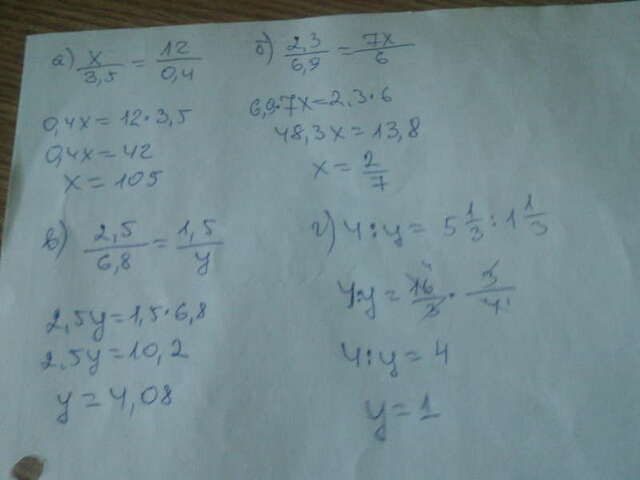 а) x/3,5 = 12/0,4
0,4x = 12·3,5
0,4x = 42
x = 105
б) 2,3/6,9 = 7x/6
6,9·7x = 2,3·6
48,3x = 13,8
x = 2/7
в) 2,5/6,8 = 1,5/y
2,5y = 1,5·6,8
2,5y = 10,2
y = 4,08
г) 4:y = 5 1/3 : 1 1/3
4:y = 16/3 · 3/4
4:y = 4
y = 1